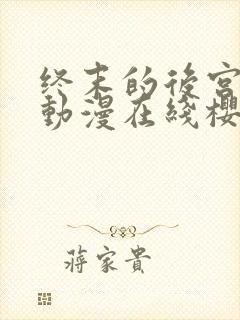 终末的後宫
動漫在綫櫻
蔣家貴